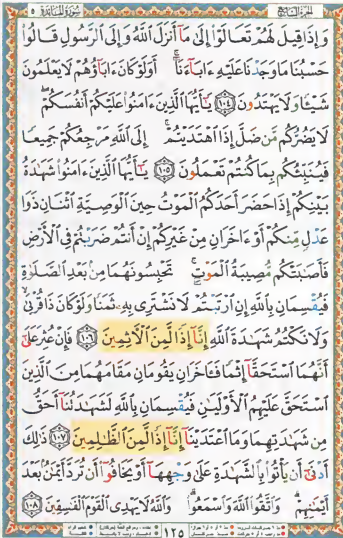 الجزء السابع سورة المائدة ٥
وَإِذَا قِيلَ لَهُمْ تَعَالَوْا۟ إِلَىٰ مَآ أَنزَلَ ٱللَّهُ وَإِلَى ٱلرَّسُولِ قَالُوا۟
حَسْبُنَا مَا وَجَدْنَا عَلَيْهِ ءَابَآءَنَآ ۚ أَوَلَوْ كَانَ ءَابَآؤُهُمْ لَا يَعْلَمُونَ
شَيْـًٔا وَلَا يَهْتَدُونَ ١٠٤ يَـٰٓأَيُّهَا ٱلَّذِينَ ءَامَنُوا۟ عَلَيْكُمْ أَنفُسَكُمْ ۖ
لَا يَضُرُّكُم مَّن ضَلَّ إِذَا ٱهْتَدَيْتُمْ ۚ إِلَى ٱللَّهِ مَرْجِعُكُمْ جَمِيعًا
فَيُنَبِّئُكُم بِمَا كُنتُمْ تَعْمَلُونَ ١٠٥ يَـٰٓأَيُّهَا ٱلَّذِينَ ءَامَنُوا۟ شَهَـٰدَةُ
بَيْنِكُمْ إِذَا حَضَرَ أَحَدَكُمُ ٱلْمَوْتُ حِينَ ٱلْوَصِيَّةِ ٱثْنَانِ ذَوَا
عَدْلٍ مِّنكُمْ أَوْ ءَاخَرَانِ مِنْ غَيْرِكُمْ إِنْ أَنتُمْ ضَرَبْتُمْ فِى ٱلْأَرْضِ
فَأَصَـٰبَتْكُم مُّصِيبَةُ ٱلْمَوْتِ ۚ تَحْبِسُونَهُمَا مِنۢ بَعْدِ ٱلصَّلَوٰةِ
فَيُقْسِمَانِ بِٱللَّهِ إِنِ ٱرْتَبْتُمْ لَا نَشْتَرِى بِهِۦ ثَمَنًا وَلَوْ كَانَ ذَا قُرْبَىٰ ۙ
وَلَا نَكْتُمُ شَهَـٰدَةَ ٱللَّهِ إِنَّآ إِذًا لَّمِنَ ٱلْـَٔاثِمِينَ ١٠٦ فَإِنْ عُثِرَ عَلَىٰٓ
أَنَّهُمَا ٱسْتَحَقَّآ إِثْمًا فَـَٔاخَرَانِ يَقُومَانِ مَقَامَهُمَا مِنَ ٱلَّذِينَ
ٱسْتَحَقَّ عَلَيْهِمُ ٱلْأَوْلَيَـٰنِ فَيُقْسِمَانِ بِٱللَّهِ لَشَهَـٰدَتُنَآ أَحَقُّ
مِن شَهَـٰدَتِهِمَا وَمَا ٱعْتَدَيْنَآ إِنَّآ إِذًا لَّمِنَ ٱلظَّـٰلِمِينَ ١٠٧ ذَٰلِكَ
أَدْنَىٰٓ أَن يَأْتُوا۟ بِٱلشَّهَـٰدَةِ عَلَىٰ وَجْهِهَآ أَوْ يَخَافُوٓا۟ أَن تُرَدَّ أَيْمَـٰنٌۢ بَعْدَ
أَيْمَـٰنِهِمْ ۗ وَٱتَّقُوا۟ ٱللَّهَ وَٱسْمَعُوا۟ ۗ وَٱللَّهُ لَا يَهْدِى ٱلْقَوْمَ ٱلْفَـٰسِقِينَ ١٠٨
١٢٥